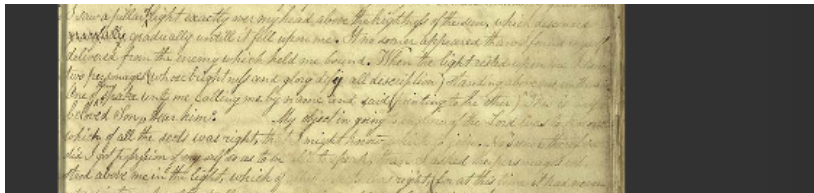 I saw a pillar of light exactly over my head above the brightness of the sun, which descended
gradually gradually untill it fell upon me. It no sooner appeared than I found myself
delivered from the enemy which held me bound. When the light rested upon me I saw
two personages (whose brightness and glory defy all description) standing above me in the air.
One of them spake unto me calling me by name and said (pointing to the other) This is my
beloved Son, Hear him. My object in going to enquire of the Lord was to know
which of all the sects was right, that I might know which to join. No sooner therefore
did I get possession of myself so as to be able to speak, than I asked the personages who
stood above me in the light, which of all the sects was right, (for at this time it had never